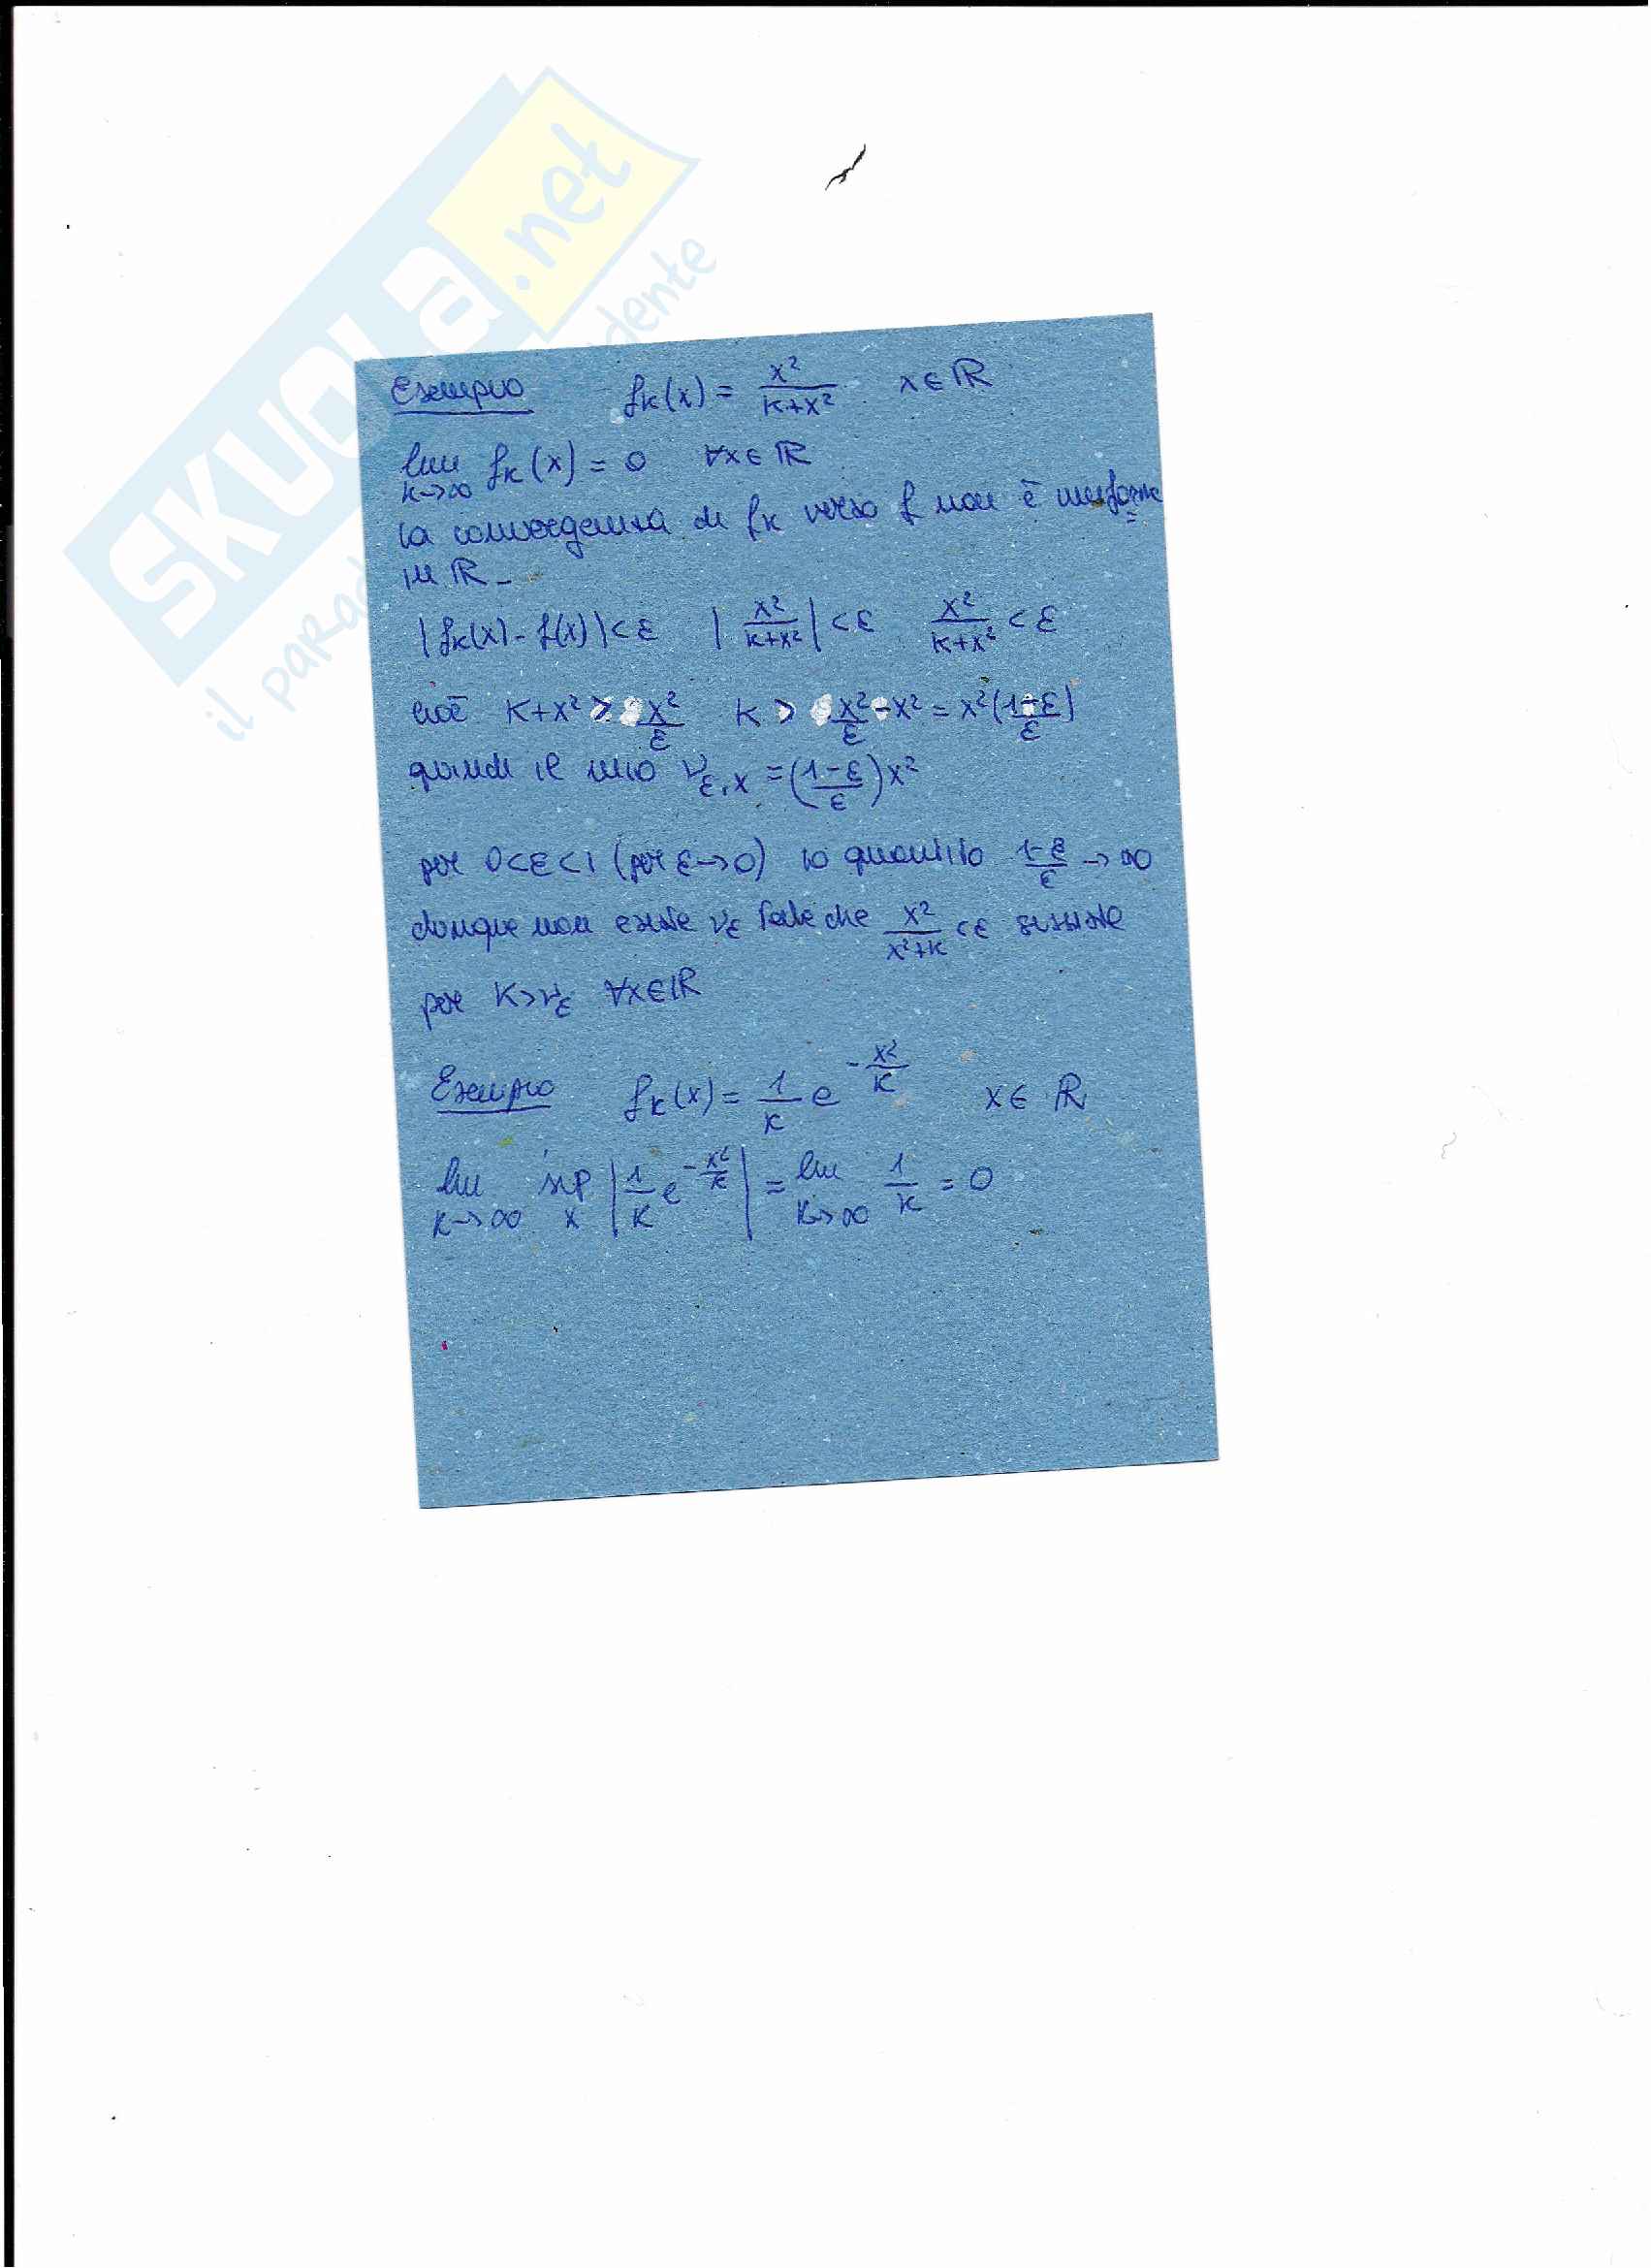 SKUOLA.net
il parad dente
Esempio fₖ(x) = x²/(k+x²) x∈ℝ
lim k→∞ fₖ(x) = 0 ∀x∈ℝ
la convergenza di fₖ verso f non è uniforme
in ℝ-
|fₖ(x) - f(x)| < ε |x²/(k+x²)| < ε x²/(k+x²) < ε
cioè k+x² > x²/ε k > x²/ε - x² = x²(1-ε)/ε
quindi il mio ν_ε,x = ((1-ε)/ε)x²
per 0<ε<1 (per ε→0) la quantità (1-ε)/ε → ∞
dunque non esiste ν_ε tale che x²/(x²+k) < ε sussiste
per k>ν_ε ∀x∈ℝ
Esempio fₖ(x) = 1/k e^(-x²/k) x∈ℝ
lim k→∞ sup x |1/k e^(-x²/k)| = lim k→∞ 1/k = 0